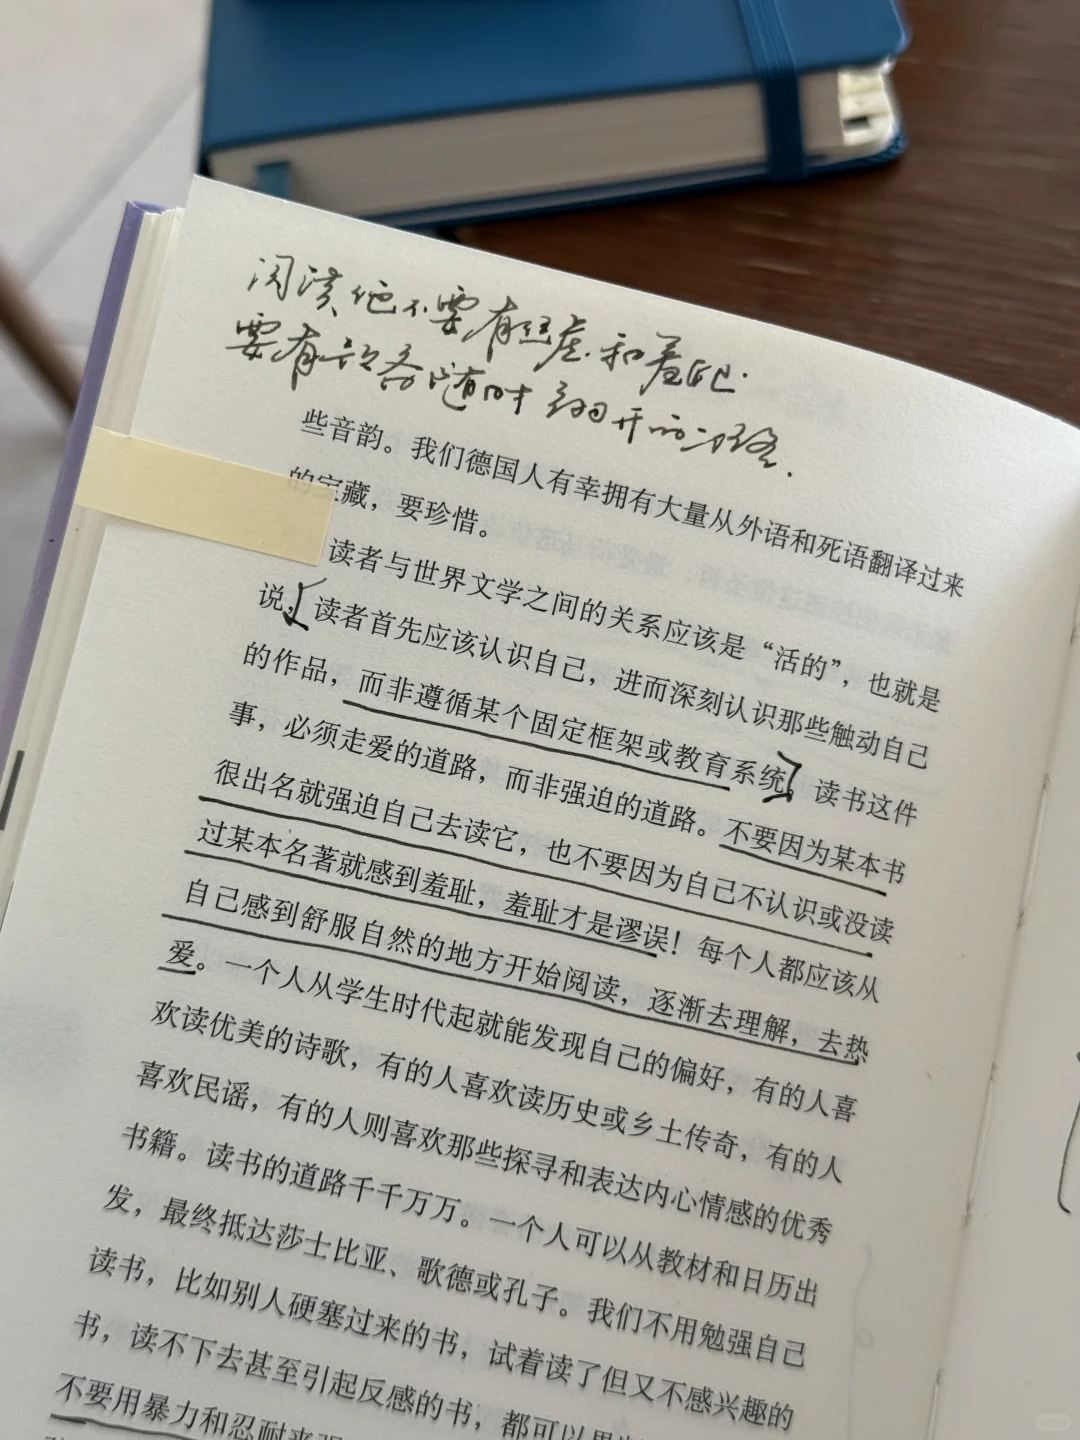 阅读也不要有焦虑和羞耻.
要有一个随时翻开的习惯.
些音韵。我们德国人有幸拥有大量从外语和死语翻译过来
的宝藏，要珍惜。
读者与世界文学之间的关系应该是“活的”，也就是
说，读者首先应该认识自己，进而深刻认识那些触动自己
的作品，而非遵循某个固定框架或教育系统。读书这件
事，必须走爱的道路，而非强迫的道路。不要因为某本书
很出名就强迫自己去读它，也不要因为自己不认识或没读
过某本名著就感到羞耻，羞耻才是谬误！每个人都应该从
自己感到舒服自然的地方开始阅读，逐渐去理解，去热
爱。一个人从学生时代起就能发现自己的偏好，有的人喜
欢读优美的诗歌，有的人喜欢读历史或乡土传奇，有的人
喜欢民谣，有的人则喜欢那些探寻和表达内心情感的优秀
书籍。读书的道路千千万万。一个人可以从教材和日历出
发，最终抵达莎士比亚、歌德或孔子。我们不用勉强自己
读书，比如别人硬塞过来的书，试着读了但又不感兴趣的
书，读不下去甚至引起反感的书，都可以
不要用暴力和忍耐来